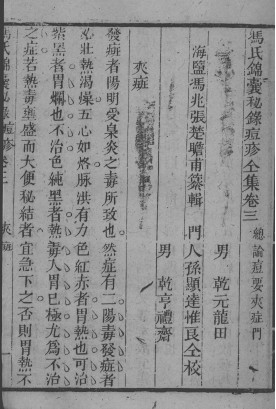 馮氏錦囊秘錄痘疹全集卷三 總論痘要夾症門
男 乾元龍田
海鹽馮兆張楚瞻甫纂輯 門人孫顯達惟良仝校
男 乾亨禮齋
夾症
發症者陽明受臬炎之毒所致也然症有二陽毒發症者
必壯熱渴燥五心如烙脉洪有力色紅赤者胃熱也可治
紫黑者胃爛也不治色純黑者熱毒入胃已極尤為不治
之症若熱毒熏盛而大便秘結者宜急下之否則胃熱不
馮氏錦囊秘錄痘疹卷三 夾症 一